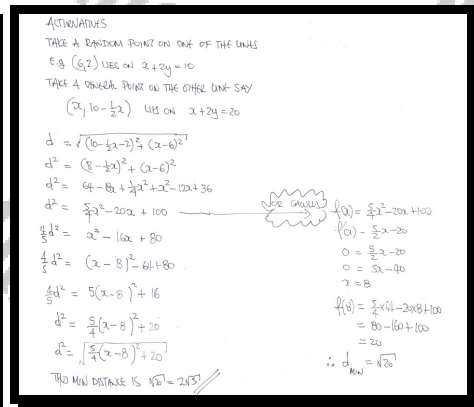 ALTERNATIVES
TAKE A RANDOM POINT ON ONE OF THE LINES
E.g (6,2) LIES ON x+2y=10
TAKE A GENERAL POINT ON THE OTHER LINE SAY
(x, 10-½x) LIES ON x+2y=20
d = √((10-½x-2)²+(x-6)²)
d² = (8-½x)²+(x-6)²
d² = 64-8x+¼x²+x²-12x+36
d² = 5/4x²-20x+100
4/5d² = x²-16x+80
4/5d² = (x-8)²-64+80
4/5d² = 5(x-8)²+16
d² = 5/4(x-8)²+20
d² = √(5/4(x-8)²+20)
THUS MIN DISTANCE IS √20 = 2√5 //
OR CALCULUS
f(x) = 5/4x²-20x+100
f'(x) = 5/2x-20
0 = 5/2x-20
0 = 5x-40
x = 8
f(8) = 5/4×64-20×8+100
= 80-160+100
= 20
∴ d MIN = √20